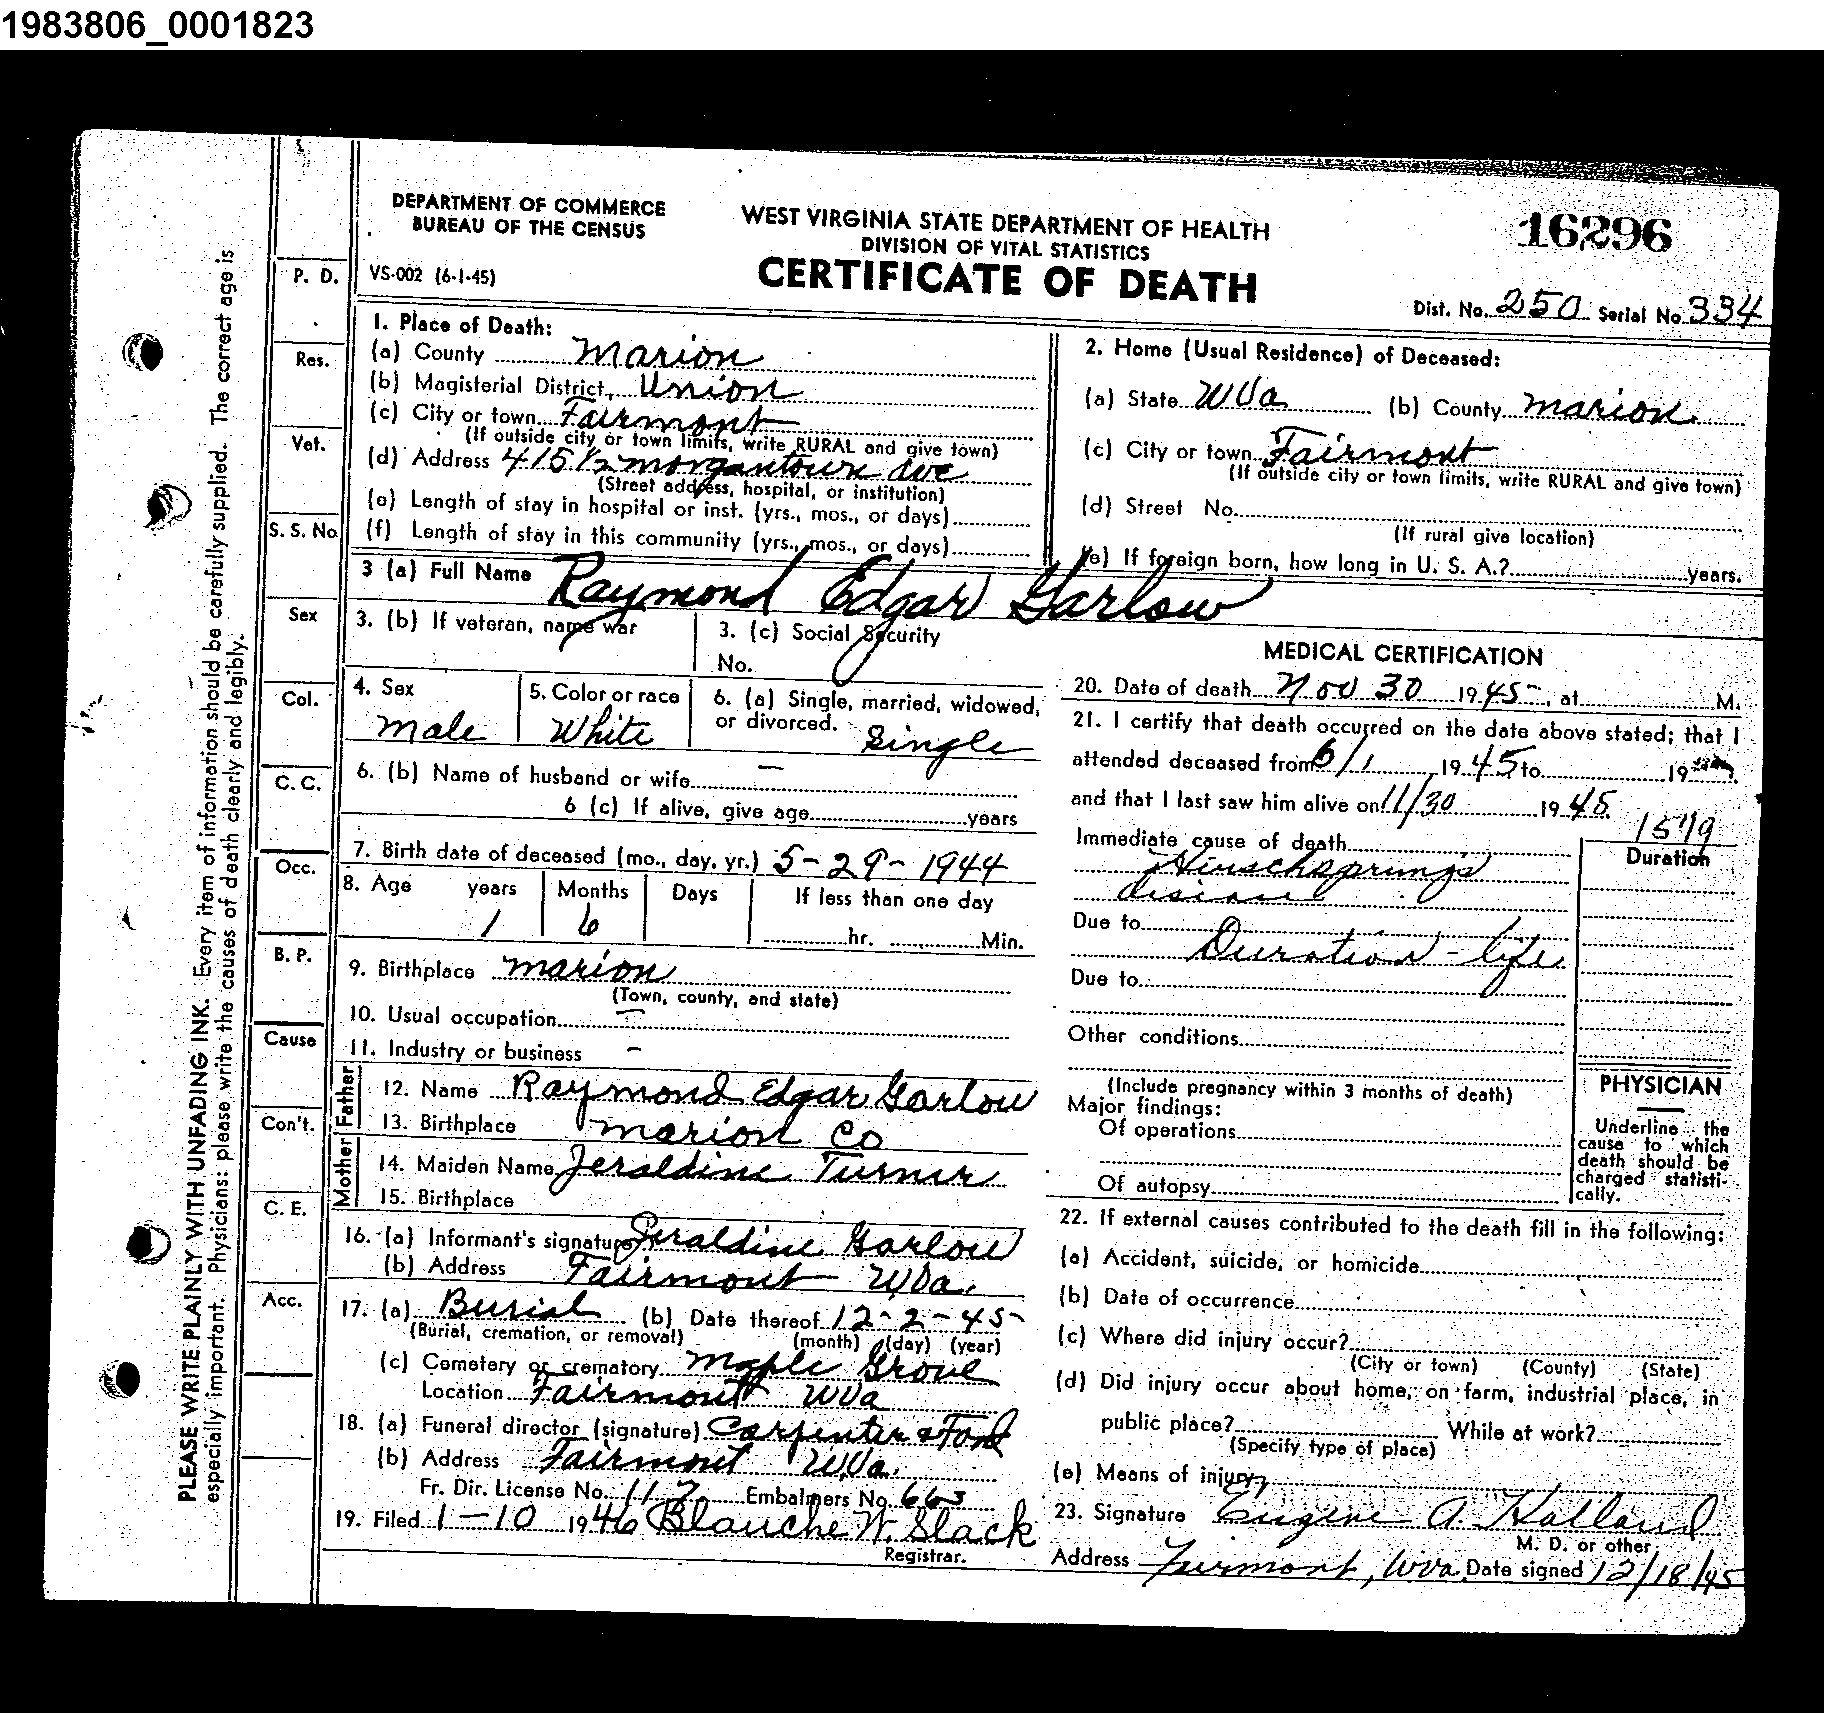 1983806_0001823
DEPARTMENT OF COMMERCE
BUREAU OF THE CENSUS
WEST VIRGINIA STATE DEPARTMENT OF HEALTH
DIVISION OF VITAL STATISTICS
CERTIFICATE OF DEATH
16296
VS-002 (6-1-45)
Dist. No. 250 Serial No. 334
PLEASE WRITE PLAINLY WITH UNFADING INK. Every item of information should be carefully supplied. The correct age is
especially important. Physicians: please write the causes of death clearly and legibly.
P. D.
Res.
Vet.
S. S. No.
Sex
Col.
C. C.
Occ.
B. P.
Cause
Con't.
C. E.
Acc.
1. Place of Death:
(a) County Marion
(b) Magisterial District, Union
(c) City or town Fairmont
(If outside city or town limits, write RURAL and give town)
(d) Address 415 1/2 Morgantown Ave
(Street address, hospital, or institution)
(e) Length of stay in hospital or inst. (yrs., mos., or days)
(f) Length of stay in this community (yrs., mos., or days)
2. Home (Usual Residence) of Deceased:
(a) State WVa (b) County Marion
(c) City or town Fairmont
(If outside city or town limits, write RURAL and give town)
(d) Street No.
(If rural give location)
(e) If foreign born, how long in U. S. A.? years.
3 (a) Full Name Raymond Edgar Garlow
3. (b) If veteran, name war
3. (c) Social Security
No.
4. Sex
Male
5. Color or race
White
6. (a) Single, married, widowed,
or divorced. Single
6. (b) Name of husband or wife —
6 (c) If alive, give age years
7. Birth date of deceased (mo., day, yr.) 5-29-1944
8. Age years Months Days If less than one day
1 6 hr. Min.
9. Birthplace Marion
(Town, county, and state)
10. Usual occupation —
11. Industry or business —
Father
12. Name Raymond Edgar Garlow
13. Birthplace Marion Co
Mother
14. Maiden Name Jeraldine Turner
15. Birthplace
16. (a) Informant's signature Jeraldine Garlow
(b) Address Fairmont WVa.
17. (a) Burial (b) Date thereof 12-2-45
(Burial, cremation, or removal) (month) (day) (year)
(c) Cemetery or crematory Maple Grove
Location Fairmont WVa
18. (a) Funeral director (signature) Carpenter & Ford
(b) Address Fairmont W.Va.
Fr. Dir. License No. 112 Embalmers No. 663
19. Filed 1-10 1946 Blanche W. Slack
Registrar.
MEDICAL CERTIFICATION
20. Date of death Nov 30 1945, at M.
21. I certify that death occurred on the date above stated; that I
attended deceased from 6/1, 1945 to 19
and that I last saw him alive on 11/30 1945.
Immediate cause of death
Hirschsprungs
disease
Duration
Due to
Duration - life
Due to
Other conditions
(Include pregnancy within 3 months of death)
Major findings:
Of operations
Of autopsy
PHYSICIAN
Underline the
cause to which
death should be
charged statisti-
cally.
22. If external causes contributed to the death fill in the following:
(a) Accident, suicide, or homicide
(b) Date of occurrence
(c) Where did injury occur?
(City or town) (County) (State)
(d) Did injury occur about home, on farm, industrial place, in
public place? While at work?
(Specify type of place)
(e) Means of injury
23. Signature Eugene A. Holland
M. D. or other
Address Fairmont, WVa. Date signed 12/18/45